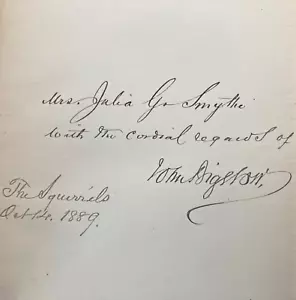 Mrs. Julia G. Smythe
with the cordial regards of
John Bigelow.
The Squirrels
Oct. 14. 1889.